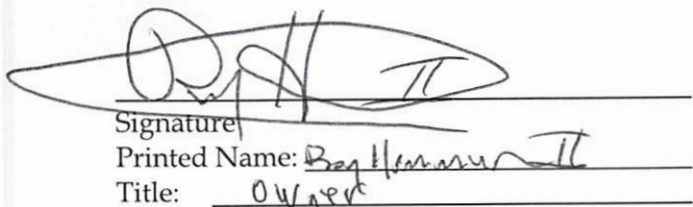 II
Signature
Printed Name: II
Title: Owner